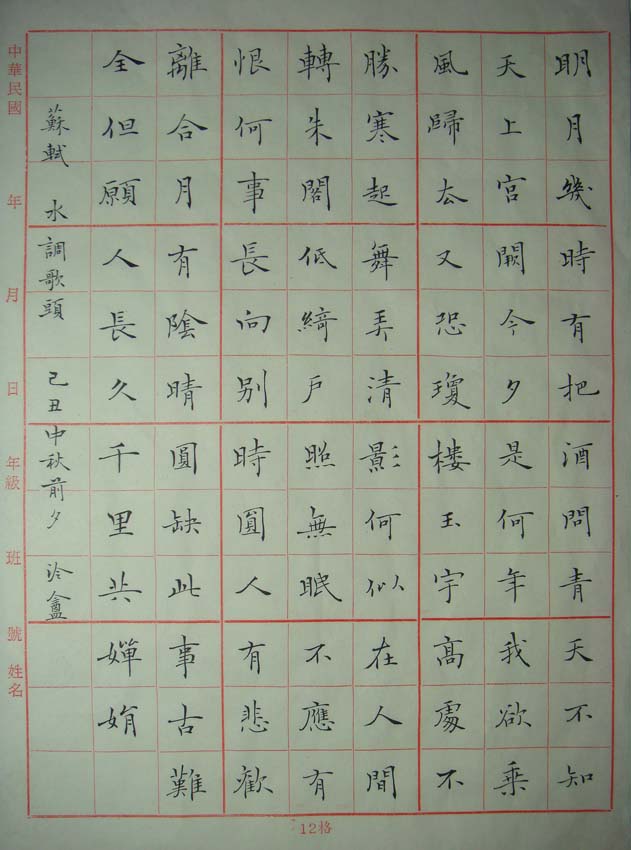 明月幾時有把酒問青天不知
天上宮闕今夕是何年我欲乘
風歸去又恐瓊楼玉宇高處不
勝寒起舞弄清影何似在人間
轉朱閣低綺戶照無眠不應有
恨何事長向別時圓人有悲歡
離合月有陰晴圓缺此事古難
全但願人長久千里共嬋娟
蘇軾 水調歌頭 己丑中秋前夕 泠盦
中華民國 年 月 日 年級 班 號 姓名
12格